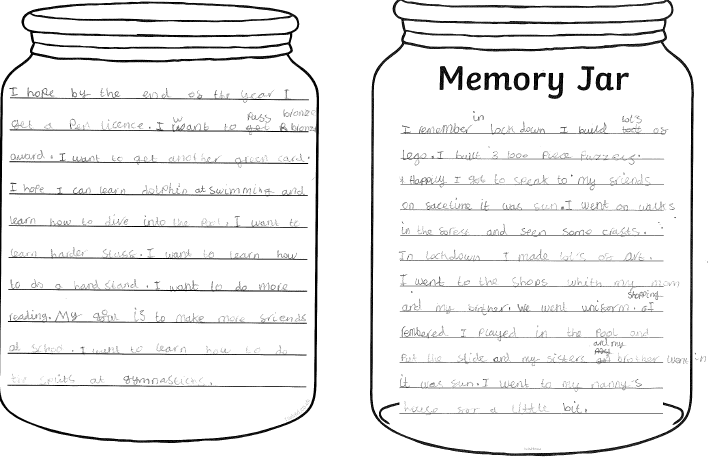 I hope by the end of the year I
get a Pen licence. I want to pass R bronze
award. I want to get another green card.
I hope I can learn dolphin at swimming and
learn how to dive into the Pool. I want to
learn harder stuff. I want to learn how
to do a handstand. I want to do more
reading. My goal is to make more friends
at school. I want to learn how to do
the splits at gymnasticks.
Memory Jar
I remember in lockdown I build lot's of
lego. I built 3 1000 Piece Puzzels.
I got to speak to my friends
on facetime it was fun. I went on walks
in the forest and seen some crafts.
In lockdown I made lot's of art.
I went to the shops whith my mom
and my brother. We went uniform shopping.
I Played in the Pool and
Put the slide and my sisters and my brother went in
it was fun. I went to my nanny's
house for a little bit.